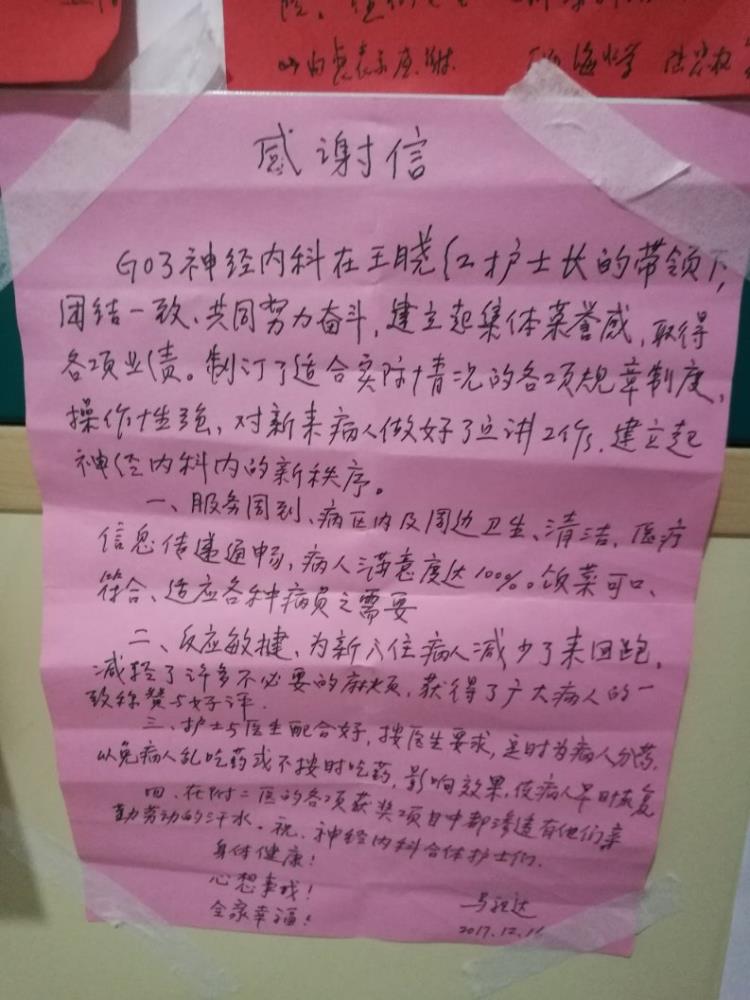 以内贵表示感谢
感谢信
G03神经内科在王晓红护士长的带领下,
团结一致、共同努力奋斗,建立起集体荣誉感,取得
各项业绩。制订了适合实际情况的各项规章制度,
操作性强,对新来病人做好了宣讲工作,建立起
神经内科内的新秩序。
一、服务周到、病区内及周边卫生、清洁、医疗
信息传递通畅,病人满意度达100%。饭菜可口、
符合、适应各种病员之需要
二、反应敏捷,为新入住病人减少了来回跑,
减轻了许多不必要的麻烦,获得了广大病人的一
致称赞与好评.
三、护士与医生配合好,按医生要求,定时为病人分药,
以免病人乱吃药或不按时吃药,影响效果,使病人早日恢复
四、在附二医的各项获奖项目中都渗透有他们辛
勤劳动的汗水。祝、神经内科全体护士们.
身体健康!
心想事成!
全家幸福!
2017.12.16